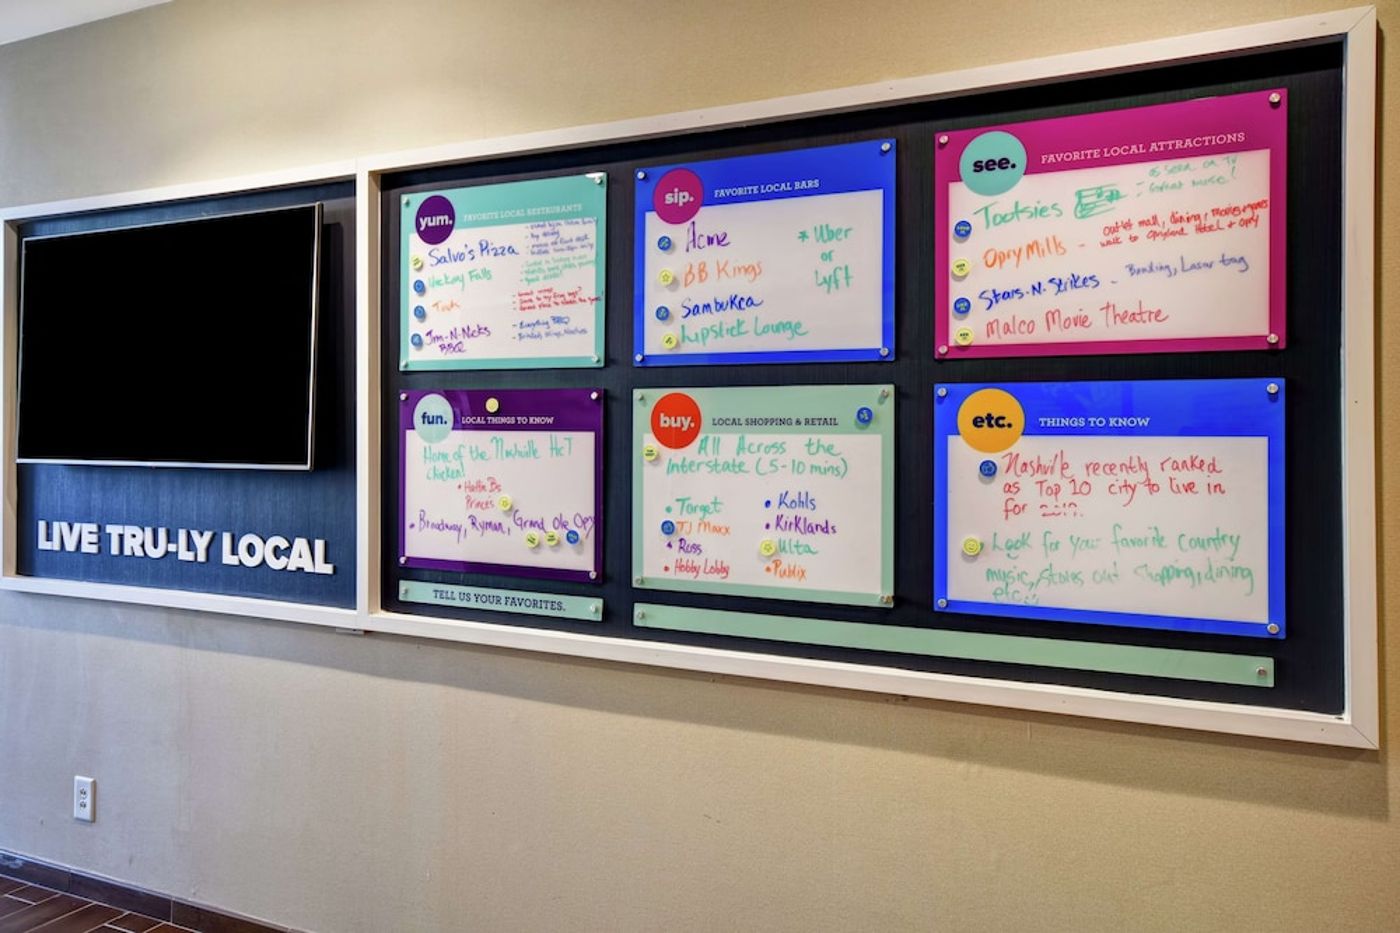 LIVE TRU-LY LOCAL
yum.
FAVORITE LOCAL RESTAURANTS
Salvo's Pizza
Hickory Falls
Jim-N-Nicks
BBQ
Everything BBQ
sip.
FAVORITE LOCAL BARS
Acme
BB Kings
Sambuka
Lipstick Lounge
* Uber
or
Lyft
see.
FAVORITE LOCAL ATTRACTIONS
as seen on TV
Tootsies - Great music!
Opry Mills - outlet mall, dining, movies
walk to Opryland Hotel & Opry
Stars-N-Strikes - Bowling, Laser tag
Malco Movie Theatre
fun.
LOCAL THINGS TO KNOW
Home of the Nashville Hot
Chicken!
• Hattie Bs
Princes
• Broadway, Ryman, Grand Ole Opry
TELL US YOUR FAVORITES.
buy.
LOCAL SHOPPING & RETAIL
All Across the
Interstate (5-10 mins)
• Target
TJ Maxx
• Ross
• Hobby Lobby
• Kohls
• Kirklands
Ulta
• Publix
etc.
THINGS TO KNOW
Nashville recently ranked
as Top 10 city to live in
for 2017.
Look for your favorite Country
music, stores out shopping, dining
etc